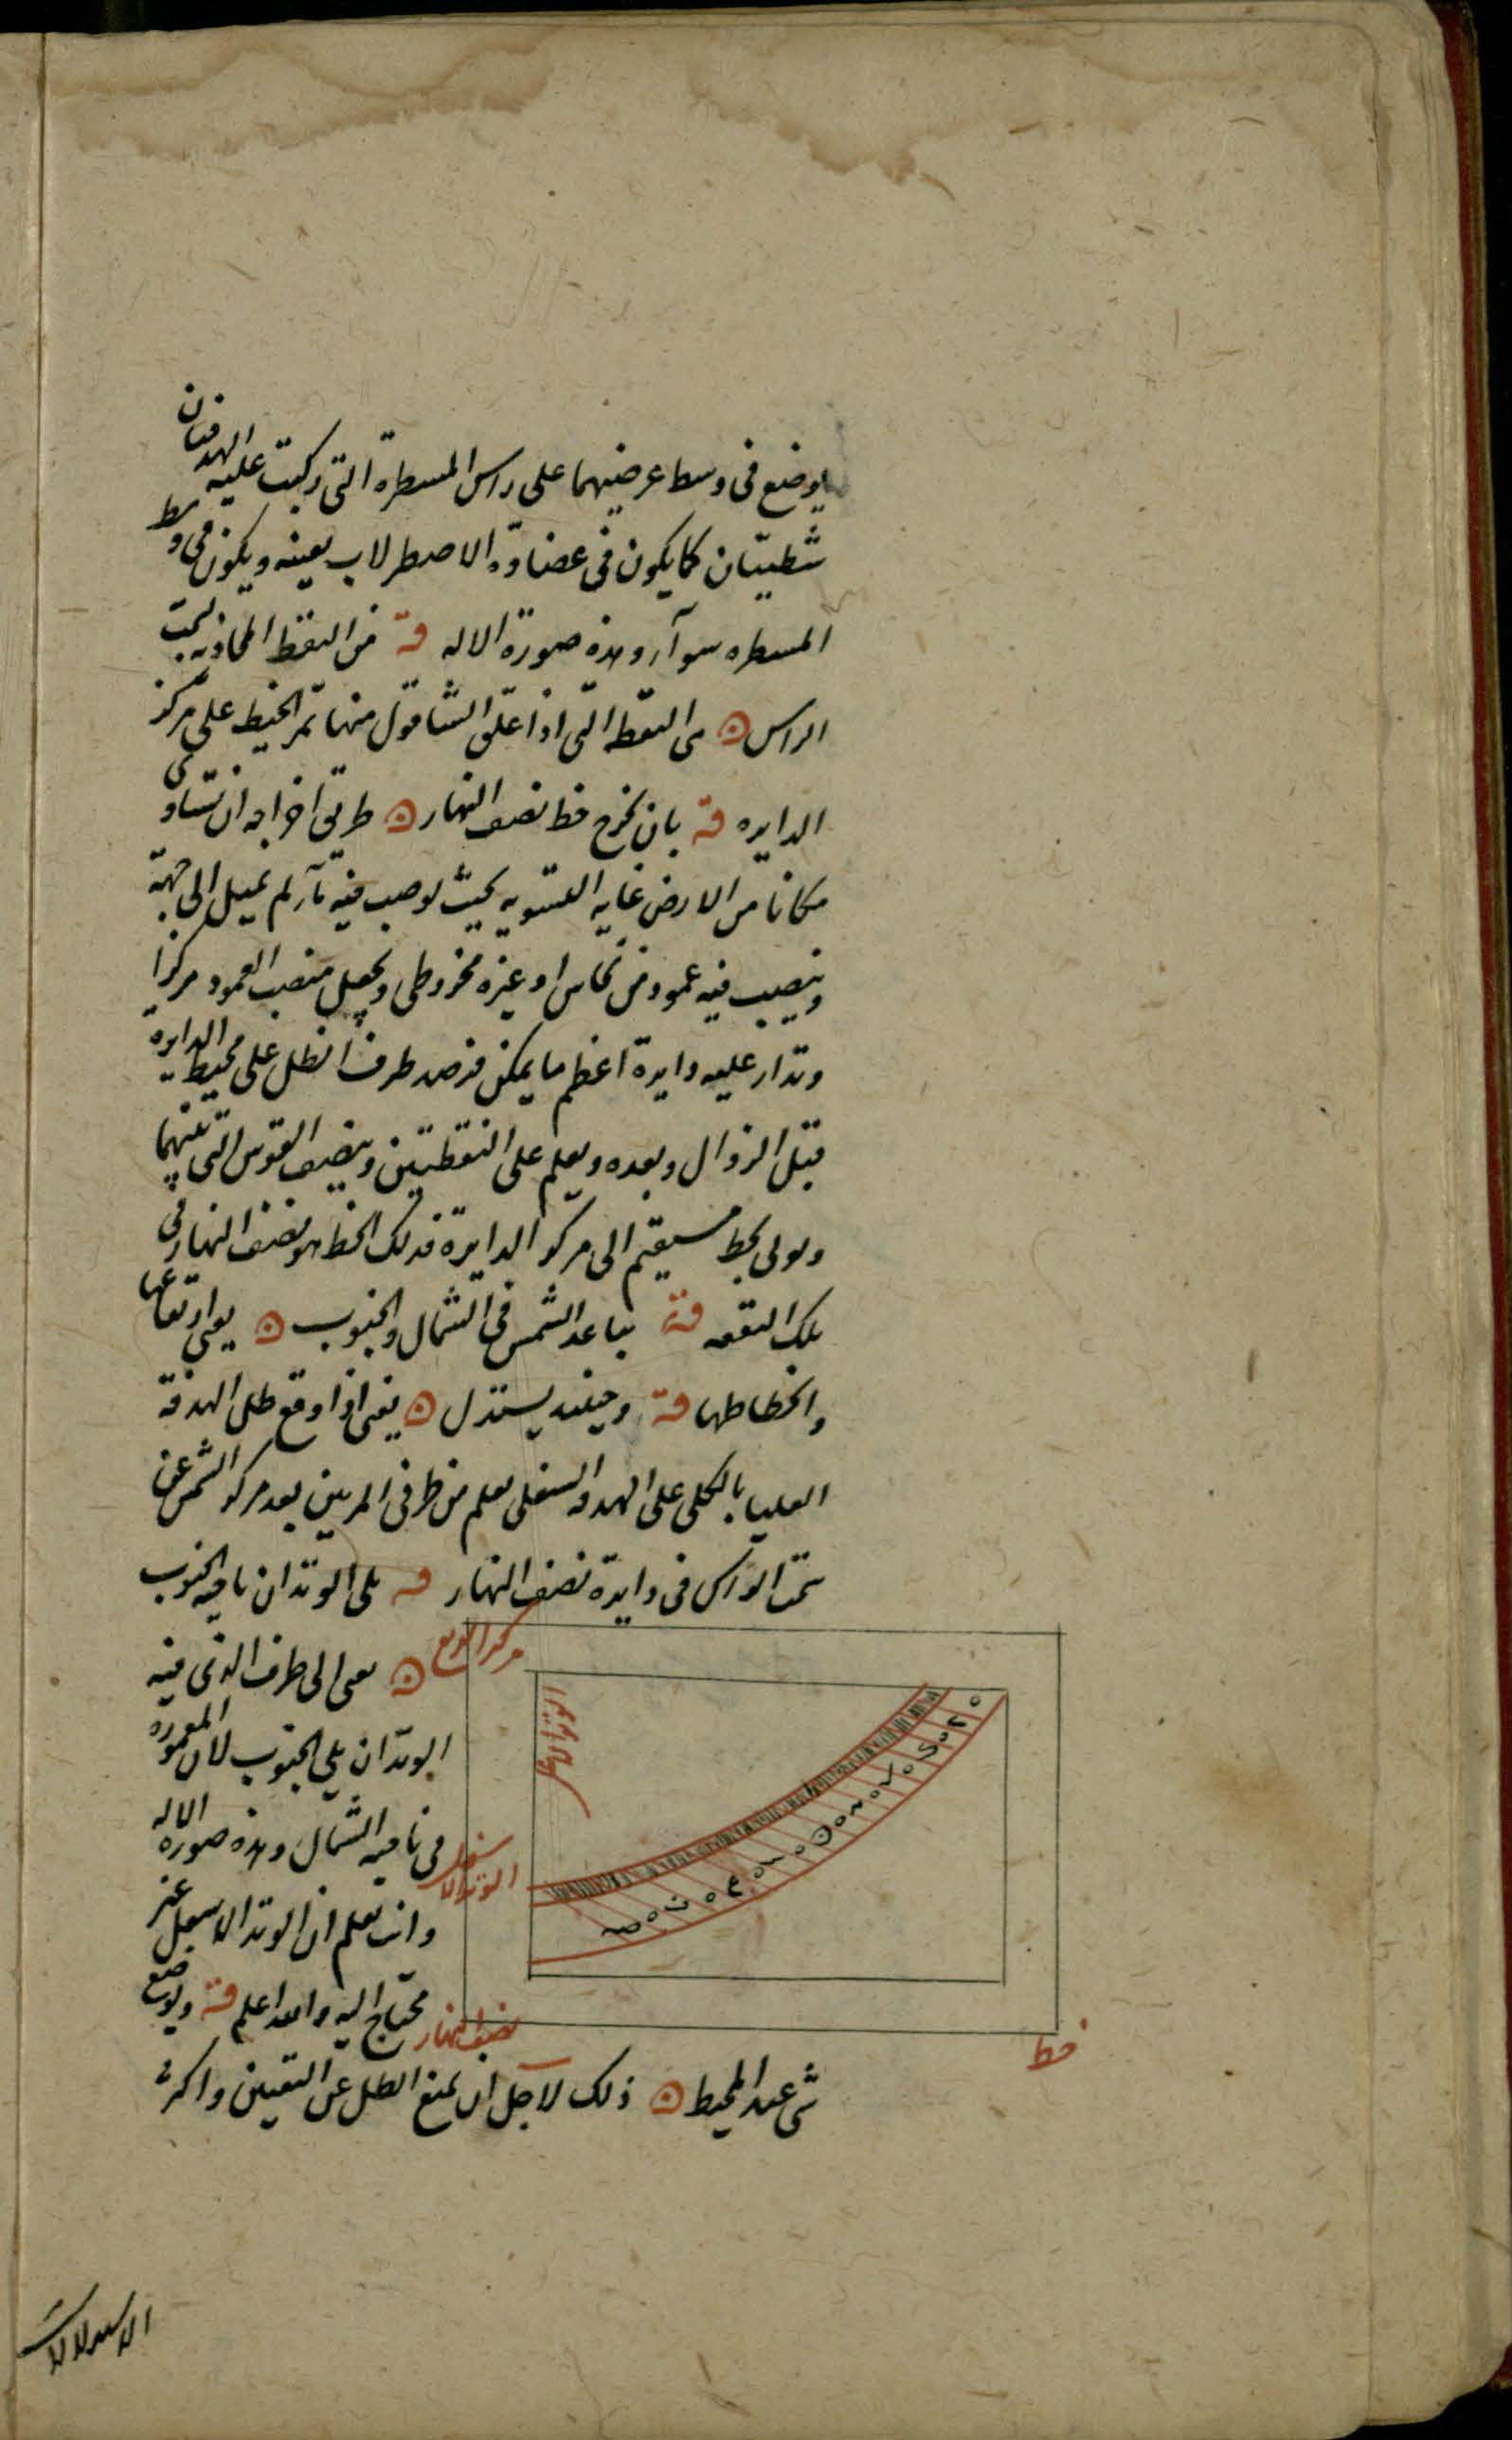 يوضع فى وسط عرضيهما على راس المسطرة التى ركبت عليه الهدفتان
شظيتان كما يكون فى عضادة الاصطرلاب بعينه ويكون فى وسط
المسطره سوآء وهذه صورة الاله قه من النقط المحاذيه لسمت
الراس ه هى النقطه التى اذا علق الشاقول منها تمر الخيط على مركز
الدايره قه بان نخرج خط نصف النهار ه طريق اخراجه ان تساوى
مكانا من الارض غايه التسويه بحيث لو صب فيه مآء لم يميل الى جهة
وينصب فيه عمود من نحاس او غيره مخروطى ويجعل منصب العمود مركزا
وتدار عليه دايرة اعظم ما يمكن فنرصد طرف الظل على محيط الدايره
قبل الزوال وبعده ويعلم على النقطتين وينصف القوس التى بينهما
ويولى بخط مستقيم الى مركز الدايرة فذلك الخط هو نصف النهار فى
تلك البقعه قه تباعد الشمس فى الشمال والجنوب ه يعنى ارتفاعها
وانحطاطها قه وحينئذ يستدل ه يعنى اذا وقع ظل الهدفة
العليا بالكلى على الهدفه السفلى يعلم من طرفى المريين بعد مركز الشمس عن
سمت الراس فى دايرة نصف النهار قه يلى الوتدان ناحيه الجنوب
ه يعنى الى طرف الذى فيه
الوتدان يلى الجنوب لان المعموره
فى ناحيه الشمال وهذه صوره الاله
وانت تعلم ان الوتد الاسفل غير
محتاج اليه والله اعلم قه ويوضع
شى عند المحيط ه ذلك لاجل ان يمنع الظل عن التعيين واكثر
مركز الربع
الوتد الاسفل
خط
نصف النهار